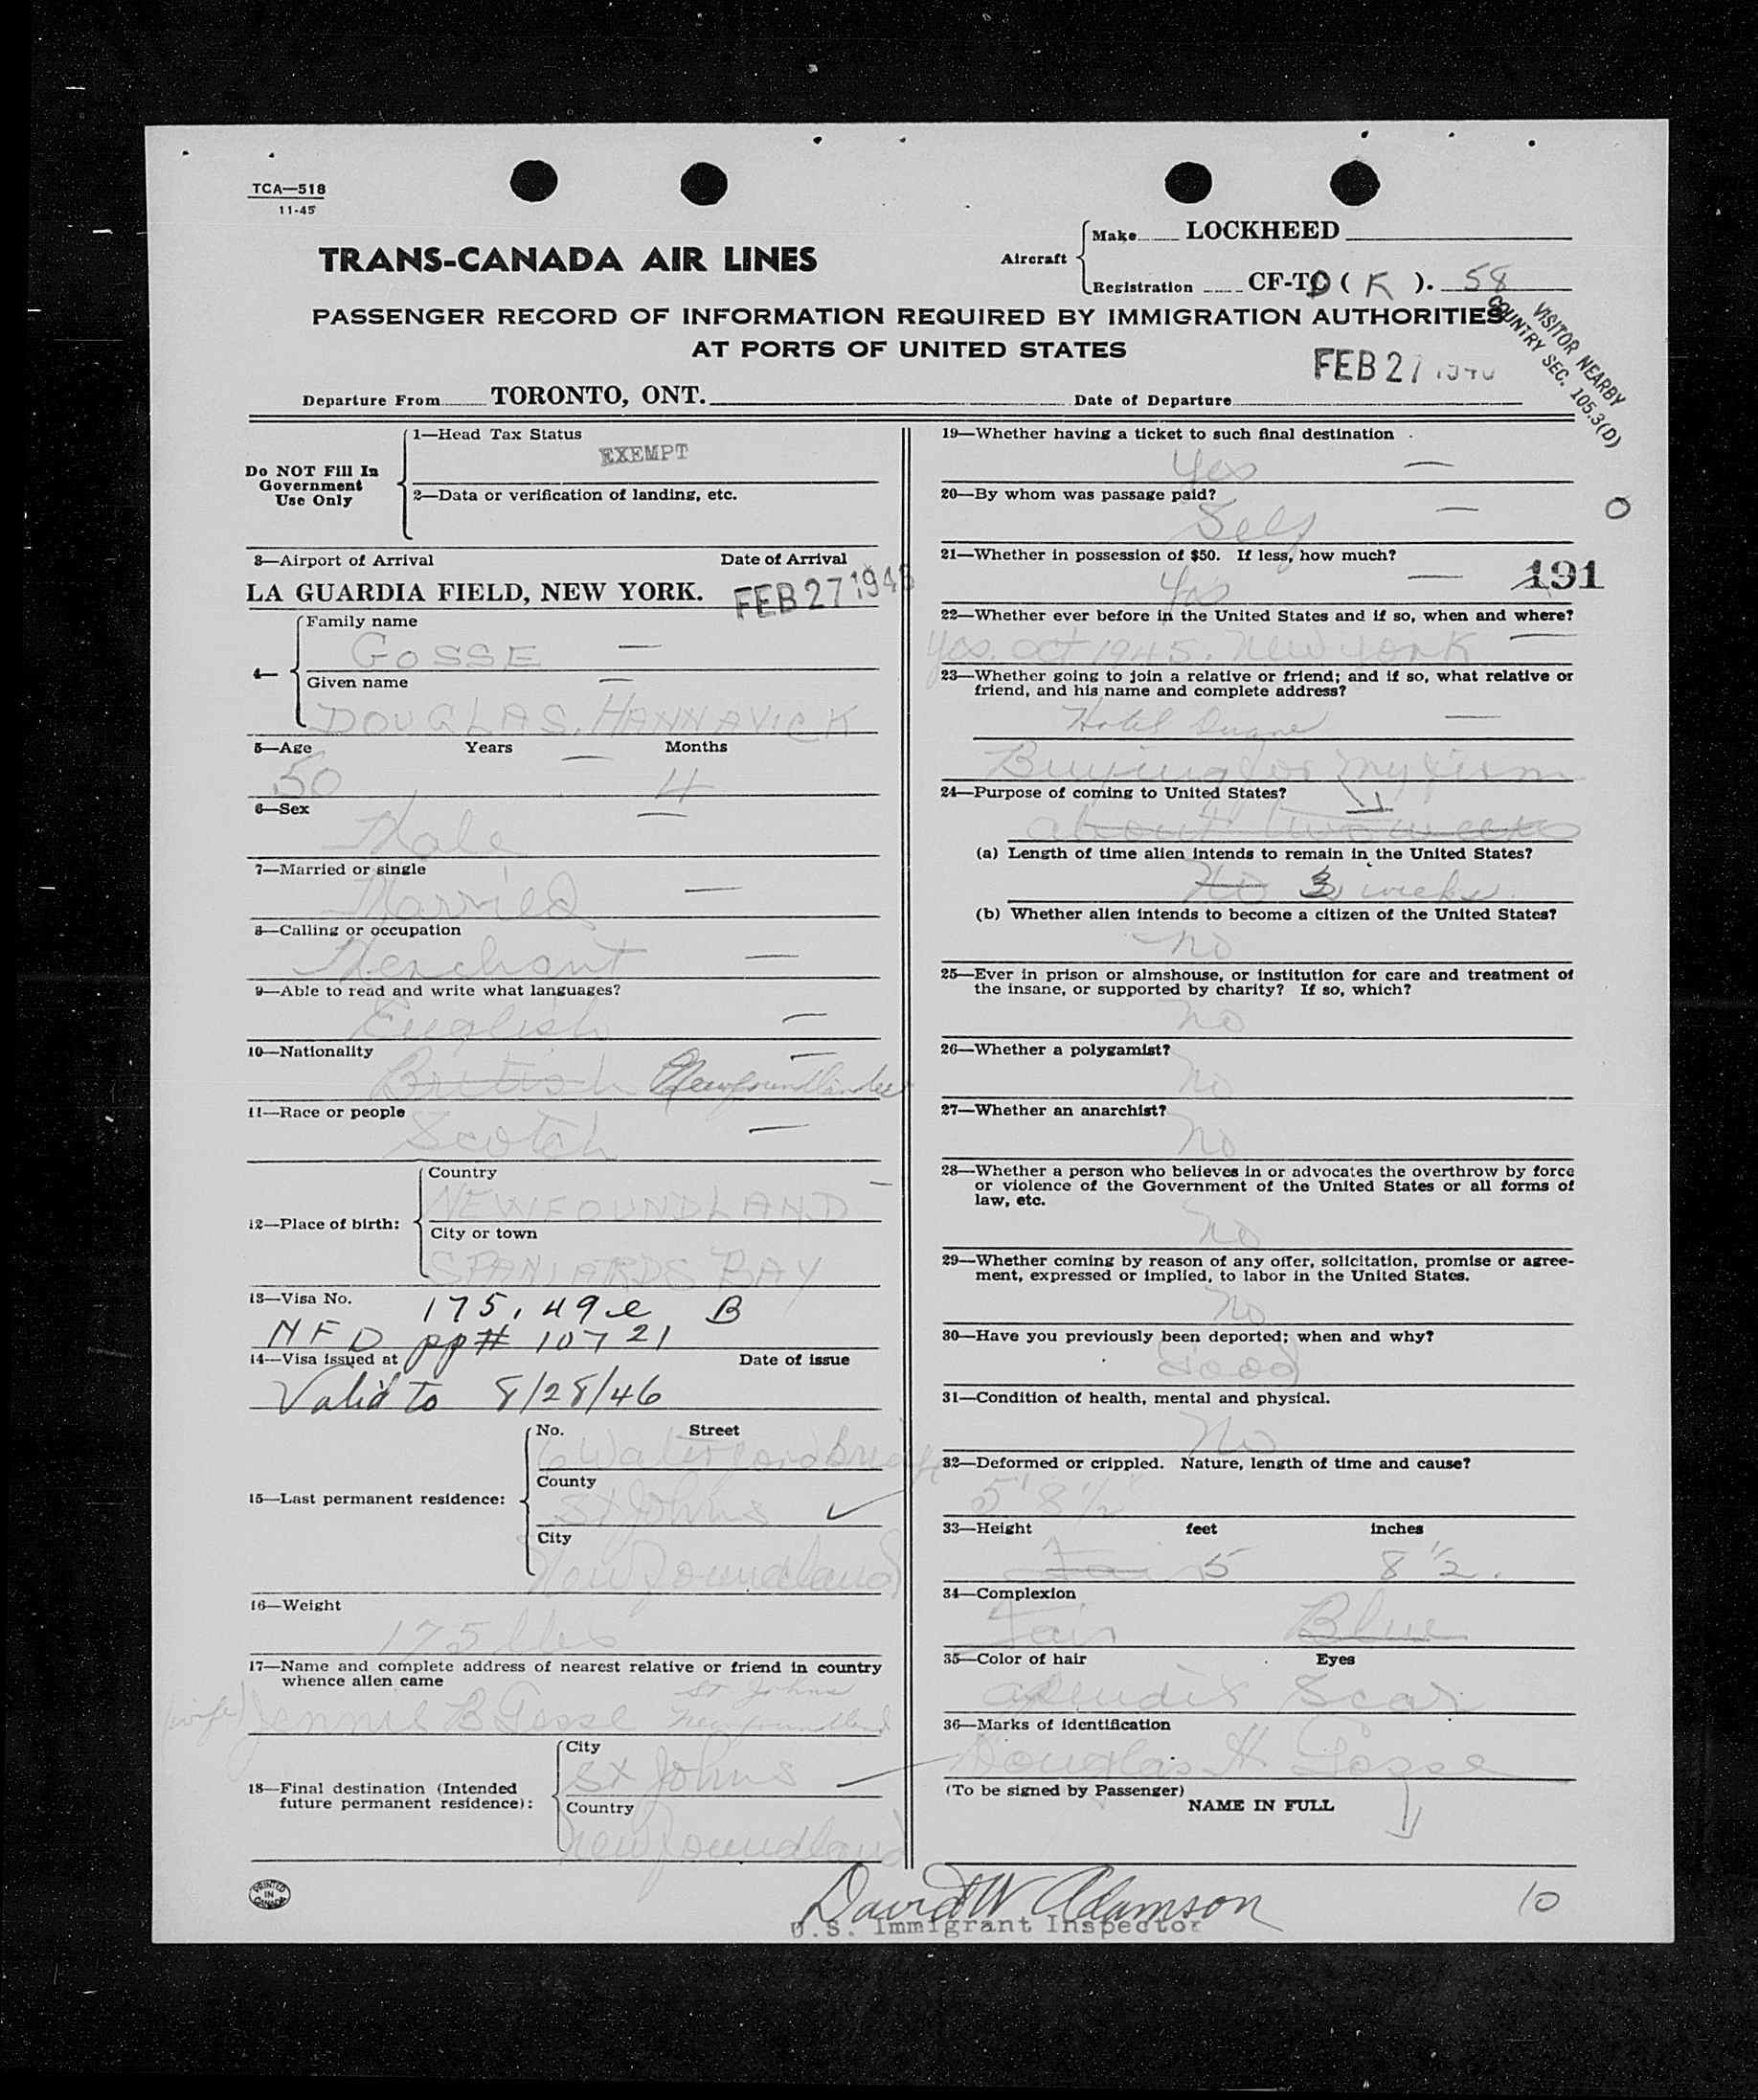 TCA—518
11-45
TRANS-CANADA AIR LINES
Aircraft
Make LOCKHEED
Registration CF-TC ( K ). 58
PASSENGER RECORD OF INFORMATION REQUIRED BY IMMIGRATION AUTHORITIES
AT PORTS OF UNITED STATES
VISITOR NEARBY
COUNTRY SEC. 105.3(D)
FEB 27 1946
Departure From TORONTO, ONT.
Date of Departure
Do NOT Fill In
Government
Use Only
1—Head Tax Status
EXEMPT
2—Data or verification of landing, etc.
3—Airport of Arrival Date of Arrival
LA GUARDIA FIELD, NEW YORK. FEB 27 1946
4—
Family name
GOSSE —
Given name —
DOUGLAS, HANNAVICK
5—Age Years Months
50 4
6—Sex
Male
7—Married or single
Married —
8—Calling or occupation
Merchant —
9—Able to read and write what languages?
English —
10—Nationality
British Newfoundlander
11—Race or people
Scotch —
12—Place of birth:
Country
NEWFOUNDLAND
City or town
SPANIARDS BAY
13—Visa No. 175,49 B
NFD pp# 10721
14—Visa issued at Date of issue
Valid to 8/28/46
15—Last permanent residence:
No. Street
6 Waterford Bridge
County
St Johns ✓
City
Newfoundland
16—Weight
175 lbs
17—Name and complete address of nearest relative or friend in country
whence alien came
St Johns
(wife) Jennie B Gosse Newfoundland
18—Final destination (Intended
future permanent residence):
City
St Johns
Country
Newfoundland
PRINTED
IN
CANADA
19—Whether having a ticket to such final destination
Yes —
20—By whom was passage paid?
Self — 0
21—Whether in possession of $50. If less, how much?
Yes — 191
22—Whether ever before in the United States and if so, when and where?
Yes. Oct 1945. New York —
23—Whether going to join a relative or friend; and if so, what relative or
friend, and his name and complete address?
Hotel Duane —
Buying for my firm
24—Purpose of coming to United States?
about two weeks
(a) Length of time alien intends to remain in the United States?
No 3 weeks
(b) Whether alien intends to become a citizen of the United States?
no
25—Ever in prison or almshouse, or institution for care and treatment of
the insane, or supported by charity? If so, which?
no
26—Whether a polygamist?
no
27—Whether an anarchist?
no
28—Whether a person who believes in or advocates the overthrow by force
or violence of the Government of the United States or all forms of
law, etc.
no
29—Whether coming by reason of any offer, solicitation, promise or agree-
ment, expressed or implied, to labor in the United States.
no
30—Have you previously been deported; when and why?
Good
31—Condition of health, mental and physical.
No
32—Deformed or crippled. Nature, length of time and cause?
5' 8 1/2"
33—Height feet inches
Fair 5 8 1/2.
34—Complexion
Fair Blue
35—Color of hair Eyes
apendix Scar
36—Marks of identification
Douglas H Gosse
(To be signed by Passenger)
NAME IN FULL
David W Adamson
U.S. Immigrant Inspector
10